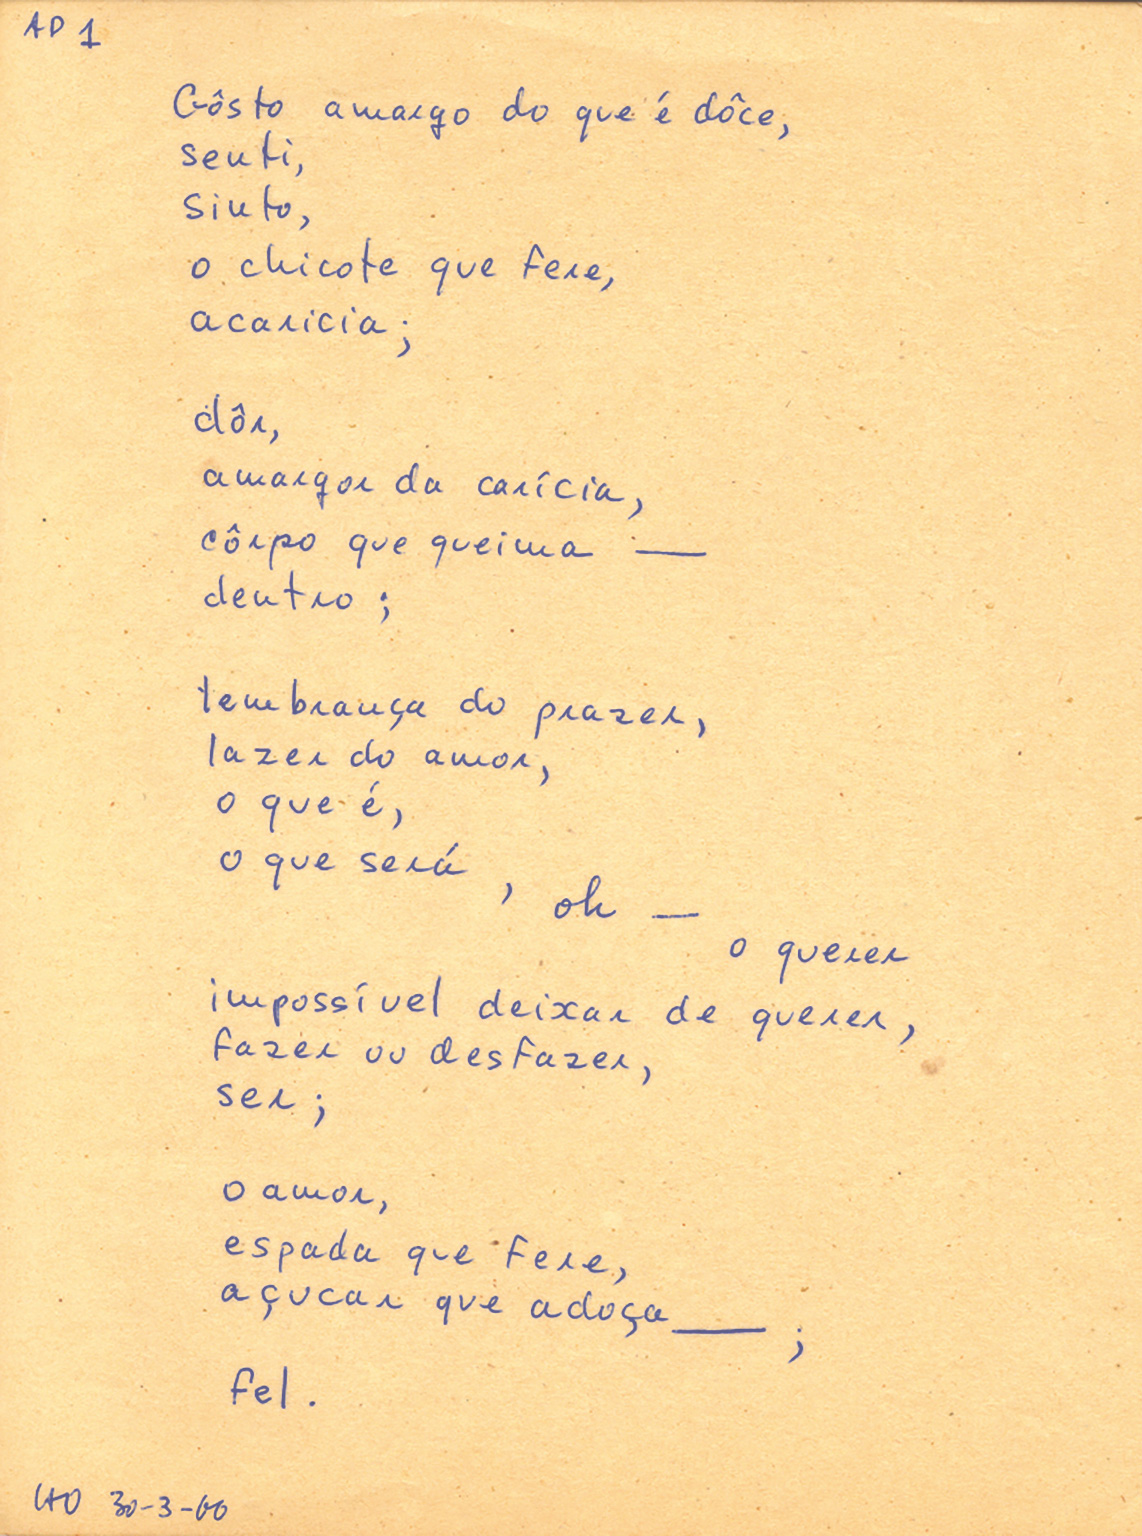 AD 1
Gôsto amargo do que é dôce,
senti,
sinto,
o chicote que fere,
acaricia;
dôr,
amargor da carícia,
côrpo que queima —
dentro;
lembrança do prazer,
lazer do amor,
o que é,
o que será, oh —
o querer
impossível deixar de querer,
fazer ou desfazer,
ser;
o amor,
espada que fere,
açucar que adoça —;
fel.
HO 30-3-60